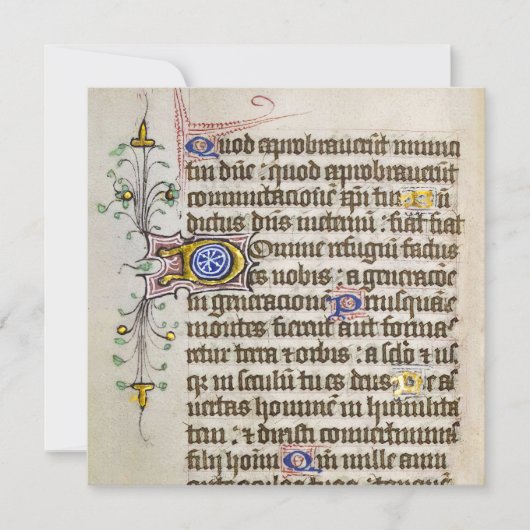 Quod exprobraverunt inimici
tui dñe: quod exprobraverunt
commutacionē xp̄i tui Bñ
dictus dñs in eternū: fiat fiat
Domine refugiū factus
es nobis: a generacōe
in generacione Priusquā
montes fierent aut forma
retur terra et orbis: a sclō et us
q3 in seculū tu es deus Ne a
vertas hominē in humilita
tem: et dixisti convertimini
filij hoīm Qm̄ mille anni